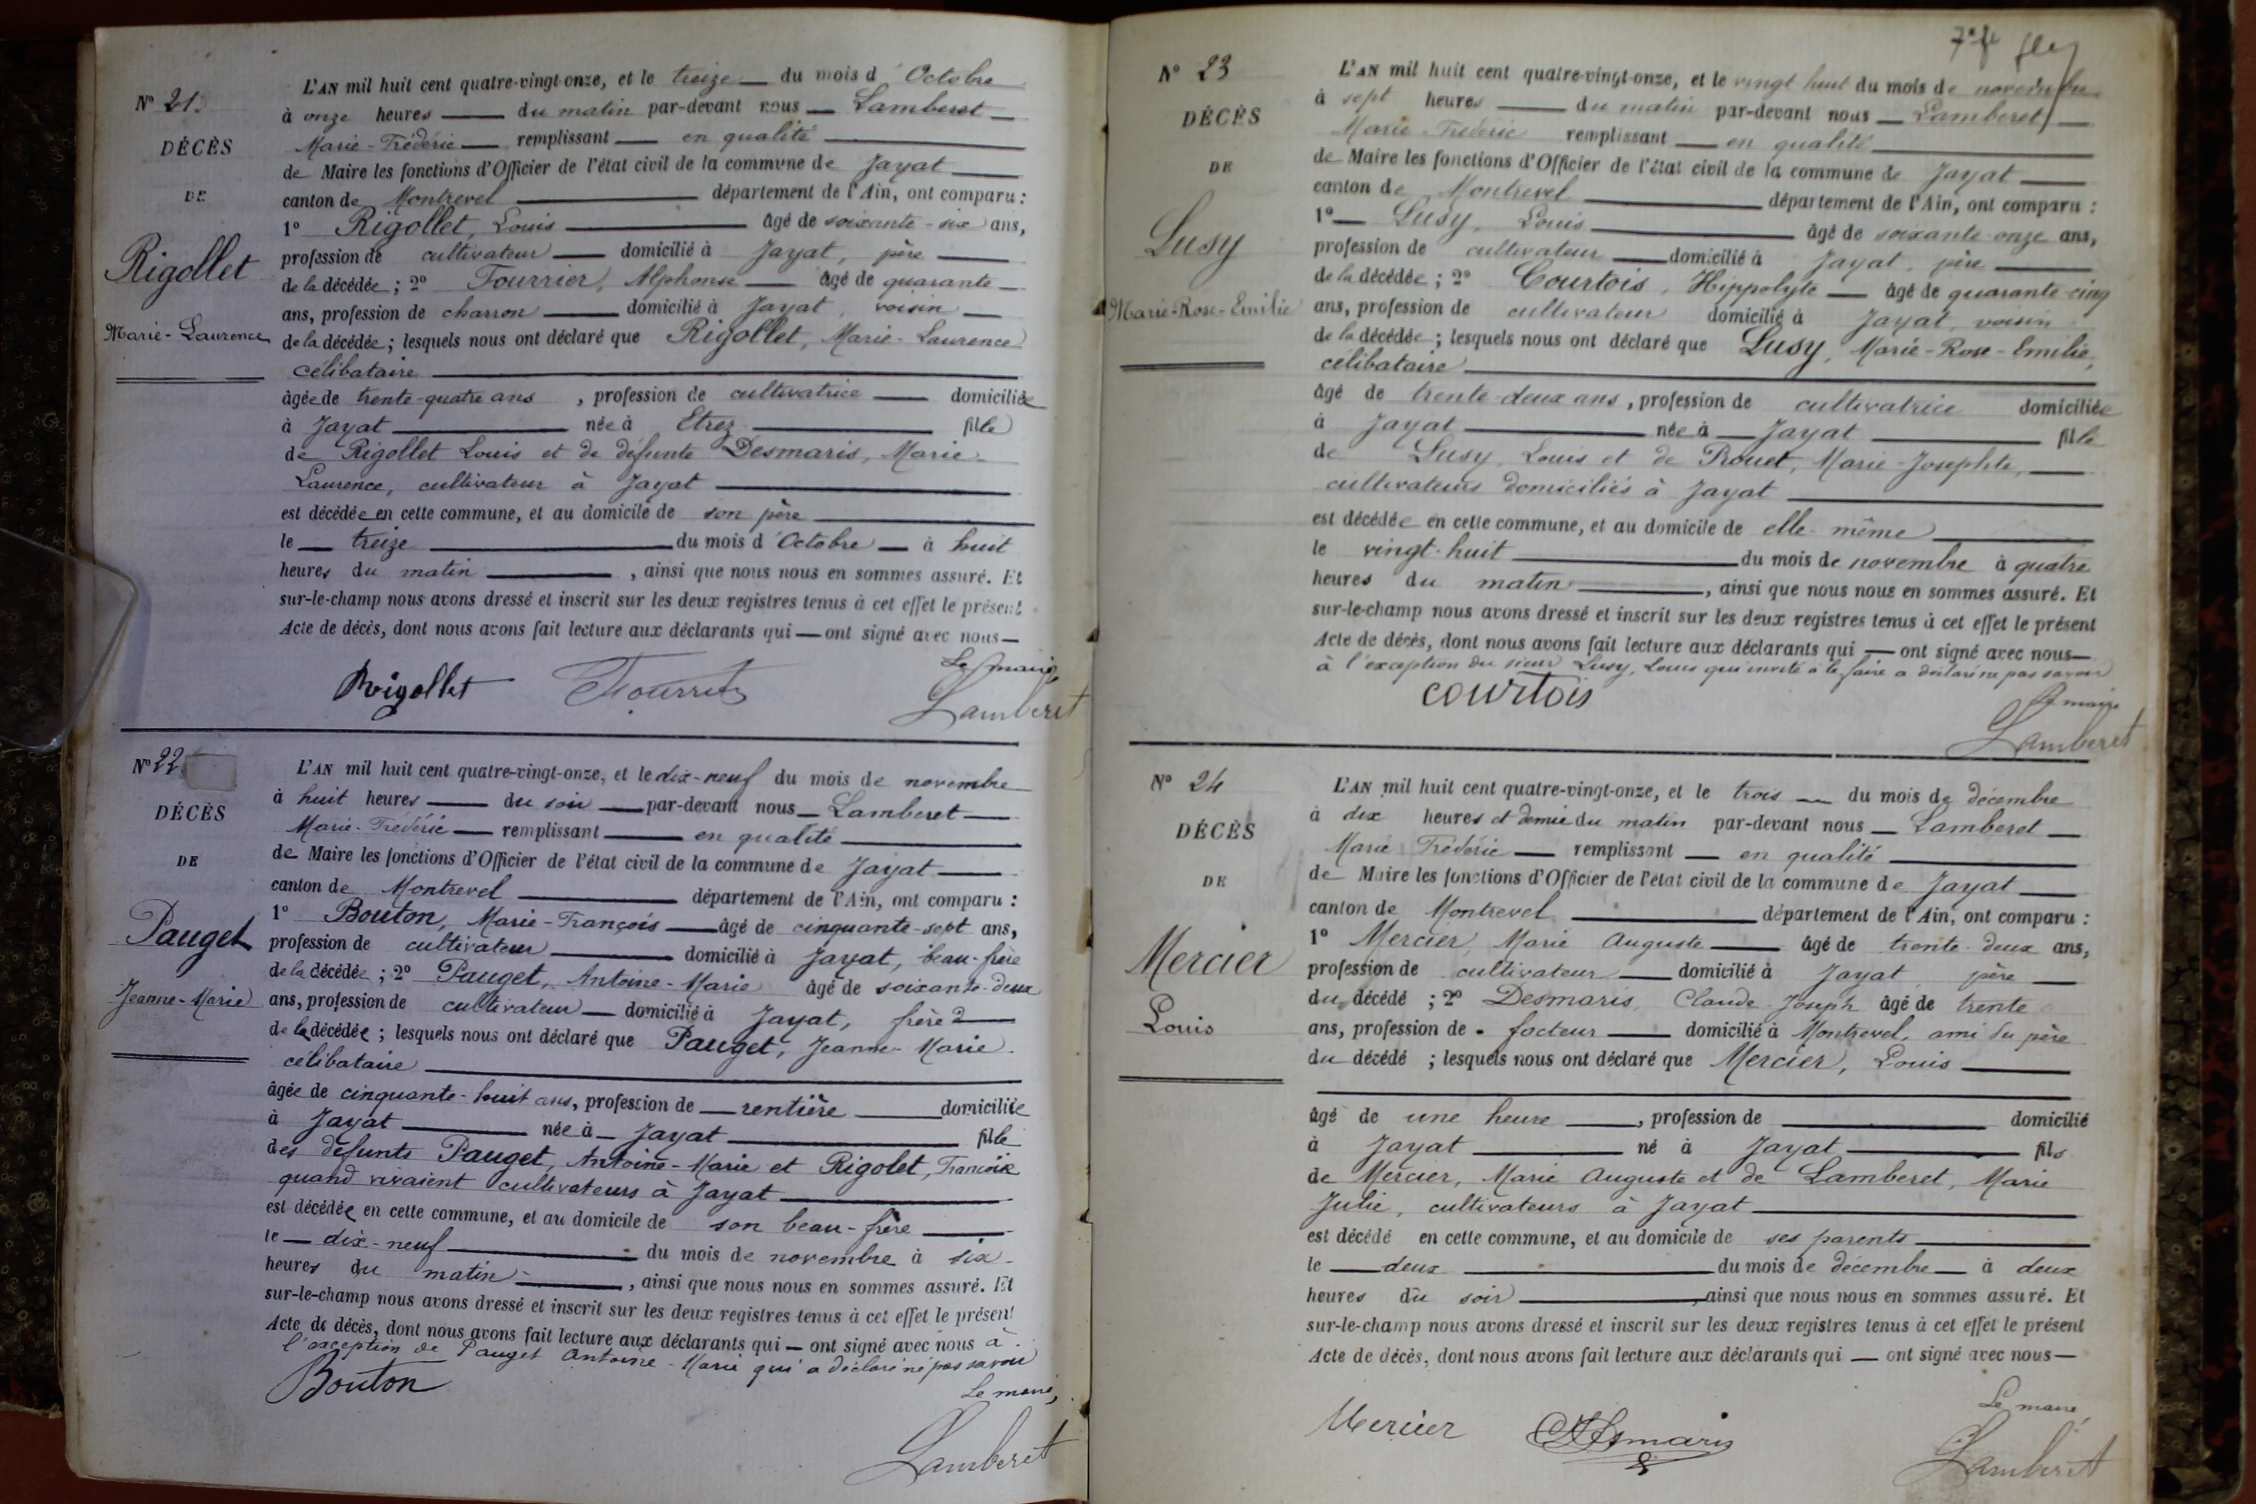 N° 21
DÉCÈS
DE
Rigollet
Marie-Laurence
L'AN mil huit cent quatre-vingt-onze, et le treize du mois d'Octobre
à onze heures du matin par-devant nous Lamberet
Marie-Frédéric remplissant en qualité
de Maire les fonctions d'Officier de l'état civil de la commune de Jayat
canton de Montrevel département de l'Ain, ont comparu :
1° Rigollet, Louis âgé de soixante-six ans,
profession de cultivateur domicilié à Jayat, père
de la décédée ; 2° Fourrier, Alphonse âgé de quarante
ans, profession de charron domicilié à Jayat, voisin
de la décédée ; lesquels nous ont déclaré que Rigollet, Marie-Laurence
célibataire
âgée de trente-quatre ans, profession de cultivatrice domiciliée
à Jayat née à Etrez fille
de Rigollet Louis et de défunte Desmaris, Marie-
Laurence, cultivateur à Jayat
est décédée en cette commune, et au domicile de son père
le treize du mois d'Octobre à huit
heures du matin, ainsi que nous nous en sommes assuré. Et
sur-le-champ nous avons dressé et inscrit sur les deux registres tenus à cet effet le présent
Acte de décès, dont nous avons fait lecture aux déclarants qui ont signé avec nous
Le maire,
Rigollet Fourrier Lamberet
N° 22
DÉCÈS
DE
Pauget
Jeanne-Marie
L'AN mil huit cent quatre-vingt-onze, et le dix-neuf du mois de novembre
à huit heures du soir par-devant nous Lamberet
Marie-Frédéric remplissant en qualité
de Maire les fonctions d'Officier de l'état civil de la commune de Jayat
canton de Montrevel département de l'Ain, ont comparu :
1° Bouton, Marie-François âgé de cinquante-sept ans,
profession de cultivateur domicilié à Jayat, beau-frère
de la décédée ; 2° Pauget, Antoine-Marie âgé de soixante-deux
ans, profession de cultivateur domicilié à Jayat, frère
de la décédée ; lesquels nous ont déclaré que Pauget, Jeanne-Marie
célibataire
âgée de cinquante-huit ans, profession de rentière domiciliée
à Jayat née à Jayat fille
des défunts Pauget, Antoine-Marie et Rigolet, Françoise
quand vivaient cultivateurs à Jayat
est décédée en cette commune, et au domicile de son beau-frère
le dix-neuf du mois de novembre à six
heures du matin, ainsi que nous nous en sommes assuré. Et
sur-le-champ nous avons dressé et inscrit sur les deux registres tenus à cet effet le présent
Acte de décès, dont nous avons fait lecture aux déclarants qui ont signé avec nous à
l'exception de Pauget Antoine-Marie qui a déclaré ne pas savoir
Bouton Le maire,
Lamberet
N° 23
DÉCÈS
DE
Lusy
Marie-Rose-Emilie
L'AN mil huit cent quatre-vingt-onze, et le vingt huit du mois de novembre
à sept heures du matin par-devant nous Lamberet
Marie Frédéric remplissant en qualité
de Maire les fonctions d'Officier de l'état civil de la commune de Jayat
canton de Montrevel département de l'Ain, ont comparu :
1° Lusy, Louis âgé de soixante-onze ans,
profession de cultivateur domicilié à Jayat, père
de la décédée ; 2° Courtois, Hippolyte âgé de quarante-cinq
ans, profession de cultivateur domicilié à Jayat, voisin
de la décédée ; lesquels nous ont déclaré que Lusy, Marie-Rose-Emilie,
célibataire
âgé de trente-deux ans, profession de cultivatrice domiciliée
à Jayat née à Jayat fille
de Lusy, Louis et de Prouet, Marie-Josephte,
cultivateurs domiciliés à Jayat
est décédée en cette commune, et au domicile de elle-même
le vingt-huit du mois de novembre à quatre
heures du matin, ainsi que nous nous en sommes assuré. Et
sur-le-champ nous avons dressé et inscrit sur les deux registres tenus à cet effet le présent
Acte de décès, dont nous avons fait lecture aux déclarants qui ont signé avec nous
à l'exception du sieur Lusy, Louis qui invité à le faire a déclaré ne pas savoir
courtois Le maire
Lamberet
N° 24
DÉCÈS
DE
Mercier
Louis
L'AN mil huit cent quatre-vingt-onze, et le trois du mois de décembre
à dix heures et demie du matin par-devant nous Lamberet
Marie Frédéric remplissant en qualité
de Maire les fonctions d'Officier de l'état civil de la commune de Jayat
canton de Montrevel département de l'Ain, ont comparu :
1° Mercier, Marie Auguste âgé de trente-deux ans,
profession de cultivateur domicilié à Jayat père
du décédé ; 2° Desmaris, Claude-Joseph âgé de trente
ans, profession de facteur domicilié à Montrevel, ami du père
du décédé ; lesquels nous ont déclaré que Mercier, Louis
âgé de une heure, profession de domicilié
à Jayat né à Jayat fils
de Mercier, Marie Auguste et de Lamberet, Marie
Julie, cultivateurs à Jayat
est décédé en cette commune, et au domicile de ses parents
le deux du mois de décembre à deux
heures du soir, ainsi que nous nous en sommes assuré. Et
sur-le-champ nous avons dressé et inscrit sur les deux registres tenus à cet effet le présent
Acte de décès, dont nous avons fait lecture aux déclarants qui ont signé avec nous
Le maire,
Mercier Desmaris Lamberet